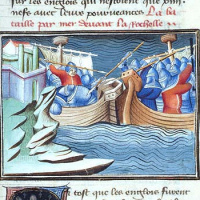 sur les englois qui nestoient que xiiii
nefs auec leure pourueances La ba
taille par mer deuant la rochelle
si tost que les englois furent